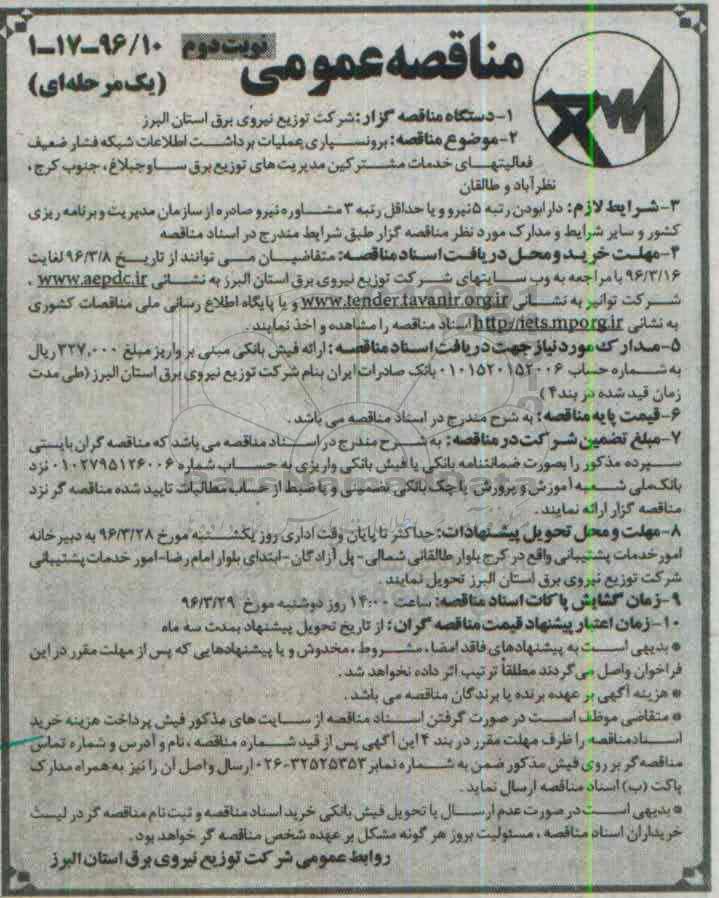 مناقصه عمومی نوبت دوم ۹۶/۱۰-۱۷-۱
(یک مرحله‌ای)
۱-دستگاه مناقصه گزار: شرکت توزیع نیروی برق استان البرز
۲-موضوع مناقصه: برونسپاری عملیات برداشت اطلاعات شبکه فشار ضعیف
فعالیتهای خدمات مشترکین مدیریت های توزیع برق ساوجبلاغ، جنوب کرج،
نظرآباد و طالقان
۳-شرایط لازم: دارا بودن رتبه ۵ نیرو و یا حداقل رتبه ۳ مشاوره نیرو صادره از سازمان مدیریت و برنامه ریزی
کشور و سایر شرایط و مدارک مورد نظر مناقصه گزار طبق شرایط مندرج در اسناد مناقصه
۴-مهلت خرید و محل دریافت اسناد مناقصه: متقاضیان می توانند از تاریخ ۹۶/۳/۸ لغایت
۹۶/۳/۱۶ با مراجعه به وب سایتهای شرکت توزیع نیروی برق استان البرز به نشانی www.aepdc.ir ،
شرکت توانیر به نشانی www.tender.tavanir.org.ir و یا پایگاه اطلاع رسانی ملی مناقصات کشوری
به نشانی http://iets.mporg.ir اسناد مناقصه را مشاهده و اخذ نمایند.
۵-مدارک مورد نیاز جهت دریافت اسناد مناقصه: ارائه فیش بانکی مبنی بر واریز مبلغ ۳۲۷,۰۰۰ ریال
به شماره حساب ۰۱۰۱۵۲۰۱۵۲۰۰۶ بانک صادرات ایران بنام شرکت توزیع نیروی برق استان البرز (طی مدت
زمان قید شده در بند ۴)
۶-قیمت پایه مناقصه: به شرح مندرج در اسناد مناقصه می باشد.
۷-مبلغ تضمین شرکت در مناقصه: به شرح مندرج در اسناد مناقصه می باشد که مناقصه گران بایستی
سپرده مذکور را بصورت ضمانتنامه بانکی یا فیش بانکی واریزی به حساب شماره ۰۱۰۲۷۹۵۱۲۶۰۰۶ نزد
بانک ملی شعبه آموزش و پرورش یا چک بانکی تضمینی و یا ضبط از حساب مطالبات تایید شده مناقصه گر نزد
مناقصه گزار ارائه نمایند.
۸-مهلت و محل تحویل پیشنهادات: حداکثر تا پایان وقت اداری روز یکشنبه مورخ ۹۶/۳/۲۸ به دبیرخانه
امور خدمات پشتیبانی واقع در کرج بلوار طالقانی شمالی- پل آزادگان- ابتدای بلوار امام رضا- امور خدمات پشتیبانی
شرکت توزیع نیروی برق استان البرز تحویل نمایند.
۹-زمان گشایش پاکات اسناد مناقصه: ساعت ۱۴:۰۰ روز دوشنبه مورخ ۹۶/۳/۲۹
۱۰-زمان اعتبار پیشنهاد قیمت مناقصه گران: از تاریخ تحویل پیشنهاد بمدت سه ماه
* بدیهی است به پیشنهادهای فاقد امضا، مشروط، مخدوش و یا پیشنهادهایی که پس از مهلت مقرر در این
فراخوان واصل می گردند مطلقاً ترتیب اثر داده نخواهد شد.
* هزینه آگهی بر عهده برنده یا برندگان مناقصه می باشد.
* متقاضی موظف است در صورت گرفتن اسناد مناقصه از سایت های مذکور فیش پرداخت هزینه خرید
اسناد مناقصه را ظرف مهلت مقرر در بند ۴ این آگهی پس از قید شماره مناقصه، نام و آدرس و شماره تماس
مناقصه گر بر روی فیش مذکور ضمن به شماره نمابر ۳۲۵۲۵۳۵۳-۰۲۶ ارسال و اصل آن را نیز به همراه مدارک
پاکت (ب) اسناد مناقصه ارسال نماید.
* بدیهی است در صورت عدم ارسال یا تحویل فیش بانکی خرید اسناد مناقصه و ثبت نام مناقصه گر در لیست
خریداران اسناد مناقصه، مسئولیت بروز هر گونه مشکل بر عهده شخص مناقصه گر خواهد بود.
روابط عمومی شرکت توزیع نیروی برق استان البرز